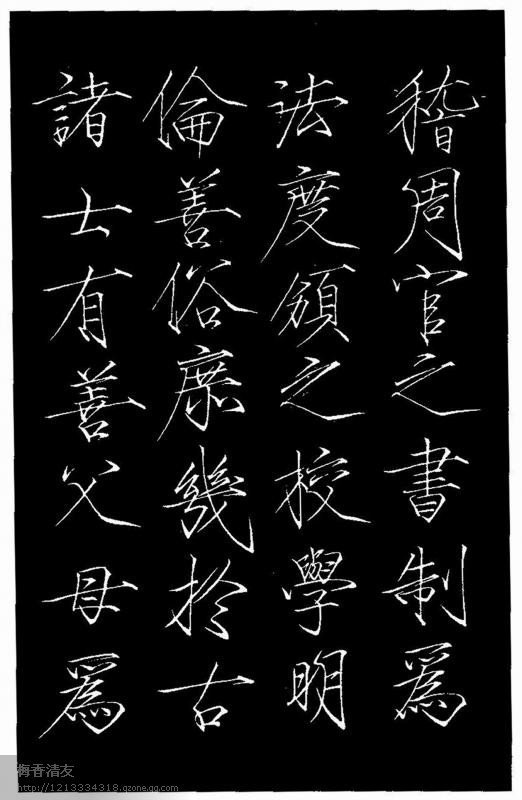 稽周官之書制爲
法度頒之校學明
倫善俗庶幾於古
諸士有善父母爲
梅香清友
http://1213334318.qzone.qq.com